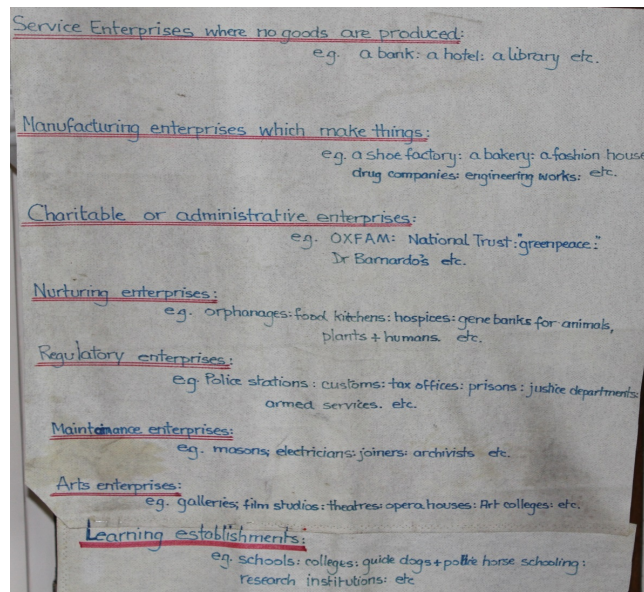 Service Enterprises where no goods are produced:
e.g. a bank: a hotel: a library etc.
Manufacturing enterprises which make things:
e.g. a shoe factory: a bakery: a fashion house
drug companies: engineering works: etc.
Charitable or administrative enterprises:
e.g. OXFAM: National Trust: "greenpeace:"
Dr Barnardo's etc.
Nurturing enterprises:
e.g. orphanages: food kitchens: hospices: gene banks for animals,
plants + humans. etc.
Regulatory enterprises:
e.g. Police stations: customs: tax offices: prisons: justice departments:
armed services. etc.
Maintainance enterprises:
e.g. masons; electricians: joiners: archivists etc.
Arts enterprises:
e.g. galleries; film studios: theatres: opera houses: Art colleges: etc.
Learning establishments:
e.g. schools: colleges: guide dogs + police horse schooling:
research institutions: etc